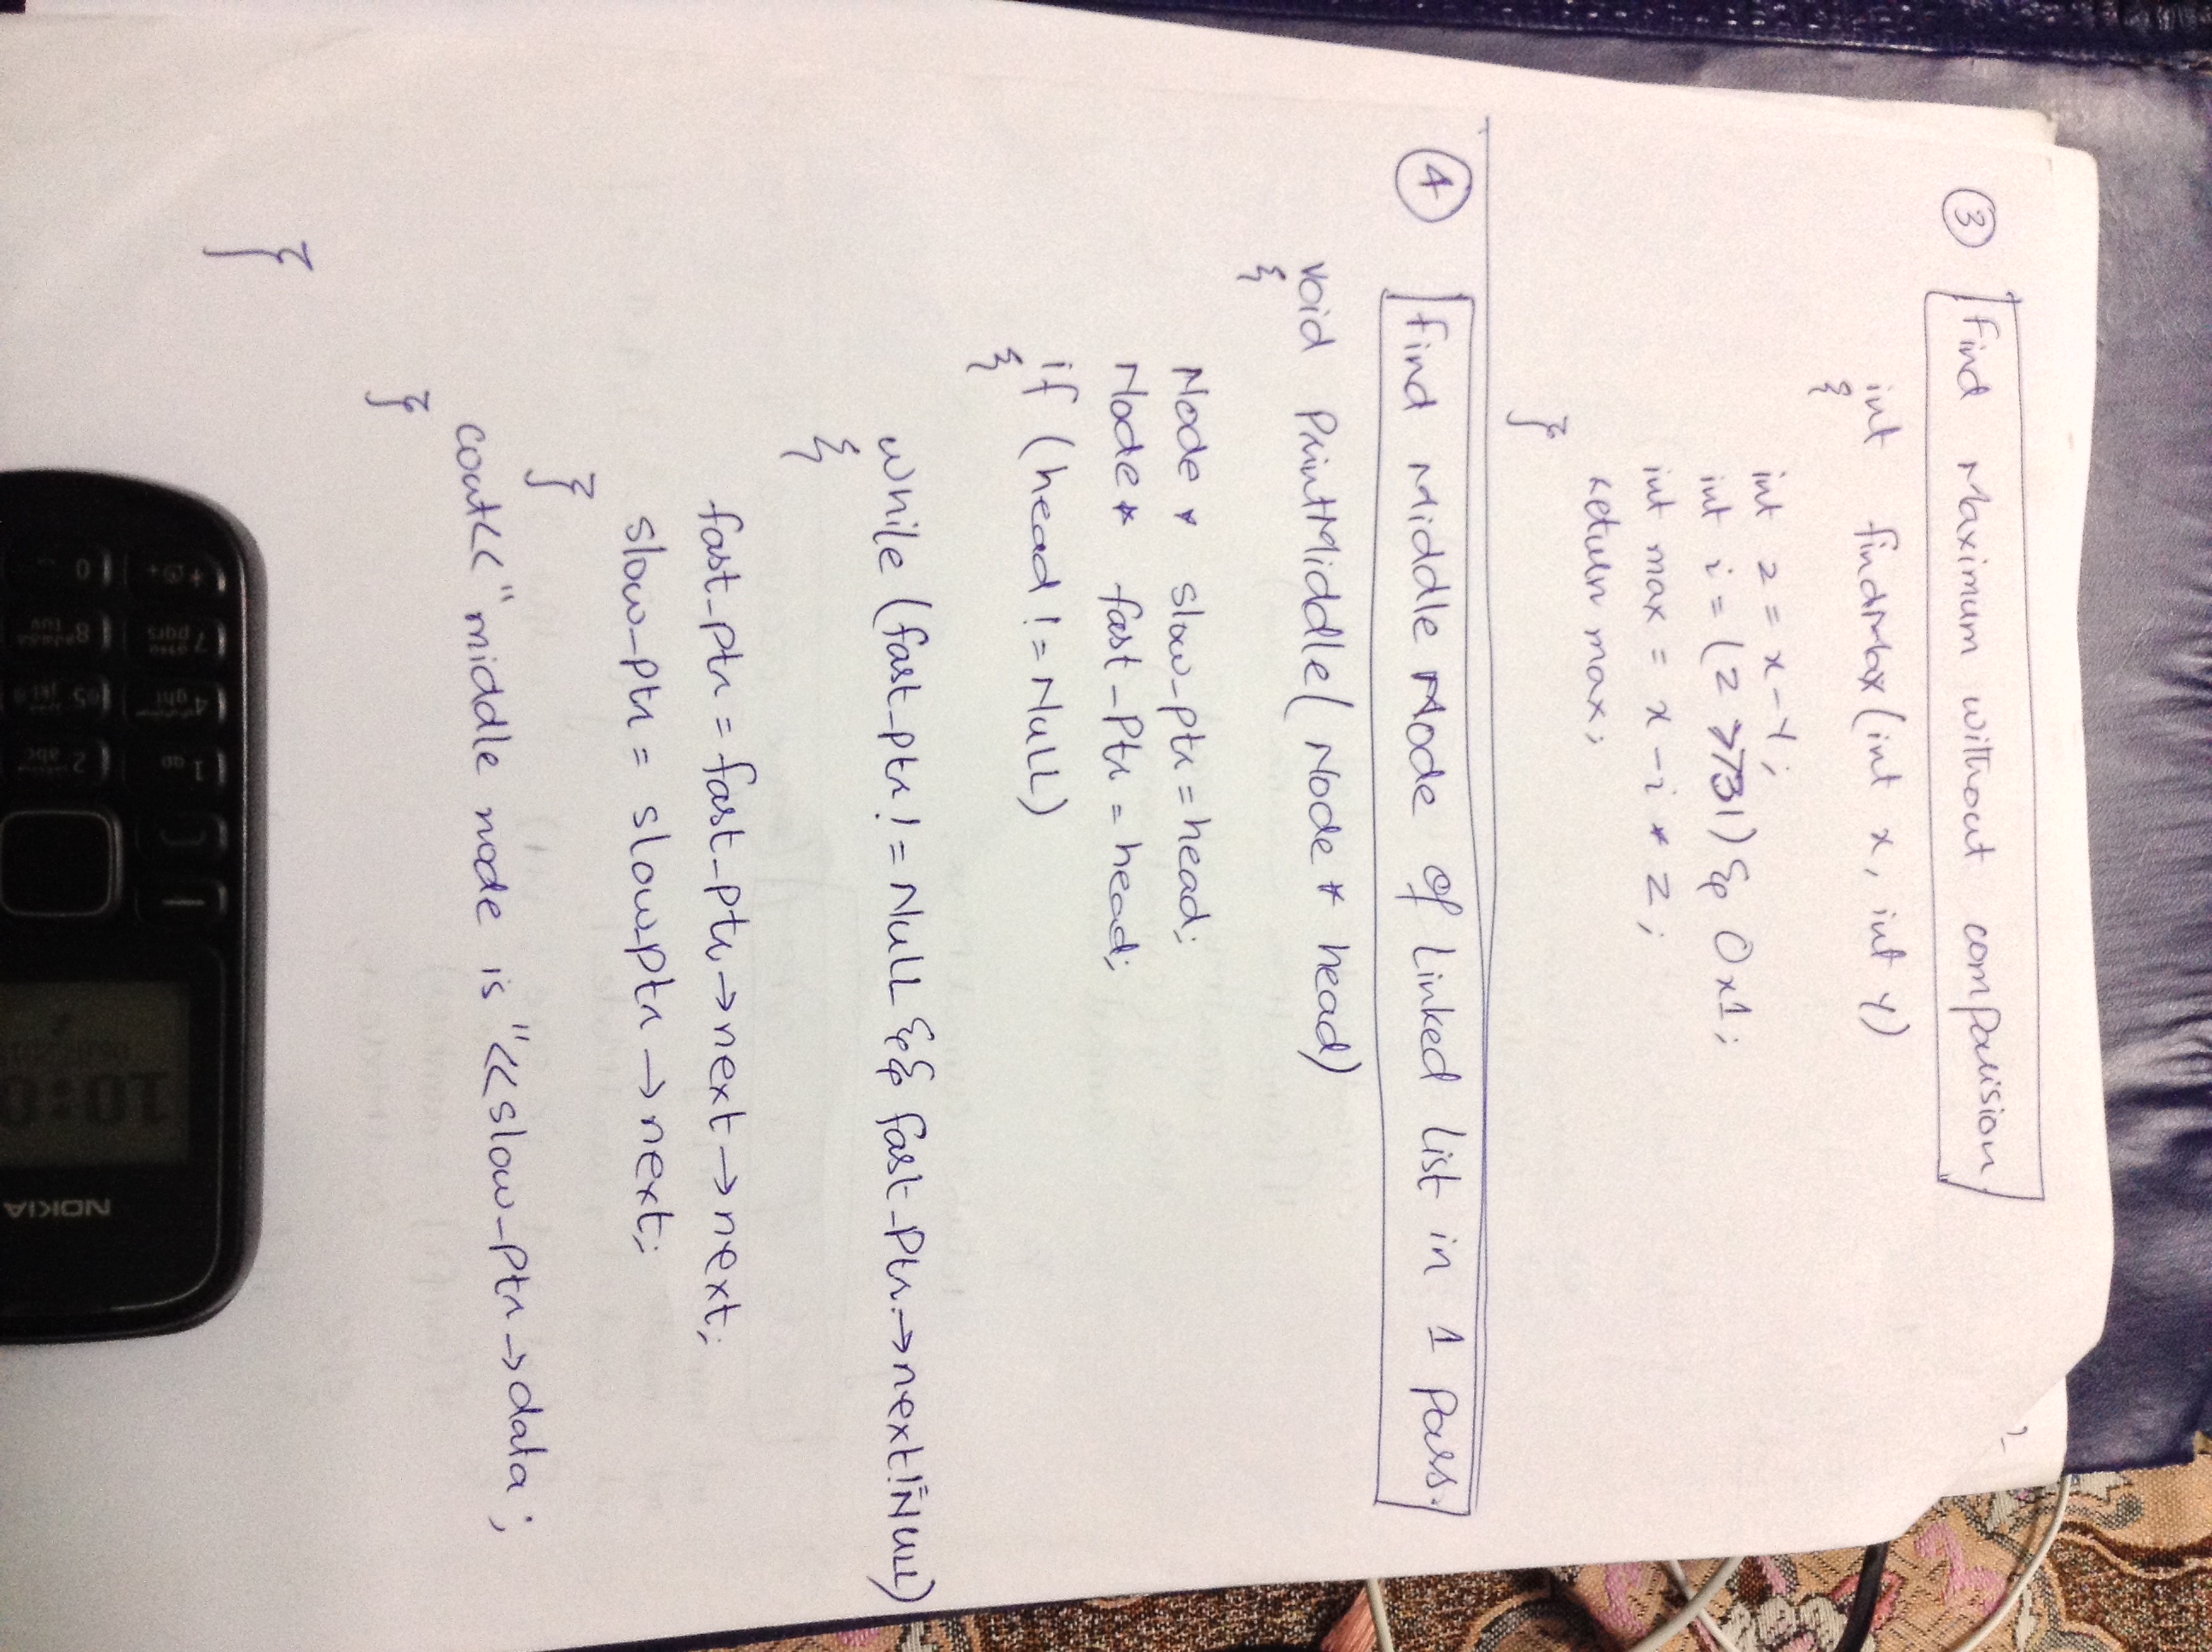 ③ Find Maximum without comparision.
int findMax(int x, int y)
{
int z = x-y;
int i = (z >>31) & 0x1;
int max = x - i * z;
return max;
}
④ Find Middle Node of Linked List in 1 pass.
void PrintMiddle( Node * head)
{
Node * slow_ptr = head;
Node * fast_Ptr = head;
if (head != NULL)
{
while (fast_ptr != NULL && fast_Ptr->next!=NULL)
{
fast_ptr = fast_ptr->next->next;
slow_ptr = slow_ptr->next;
}
cout<<"middle node is "<<slow_ptr->data;
}
}
NOKIA